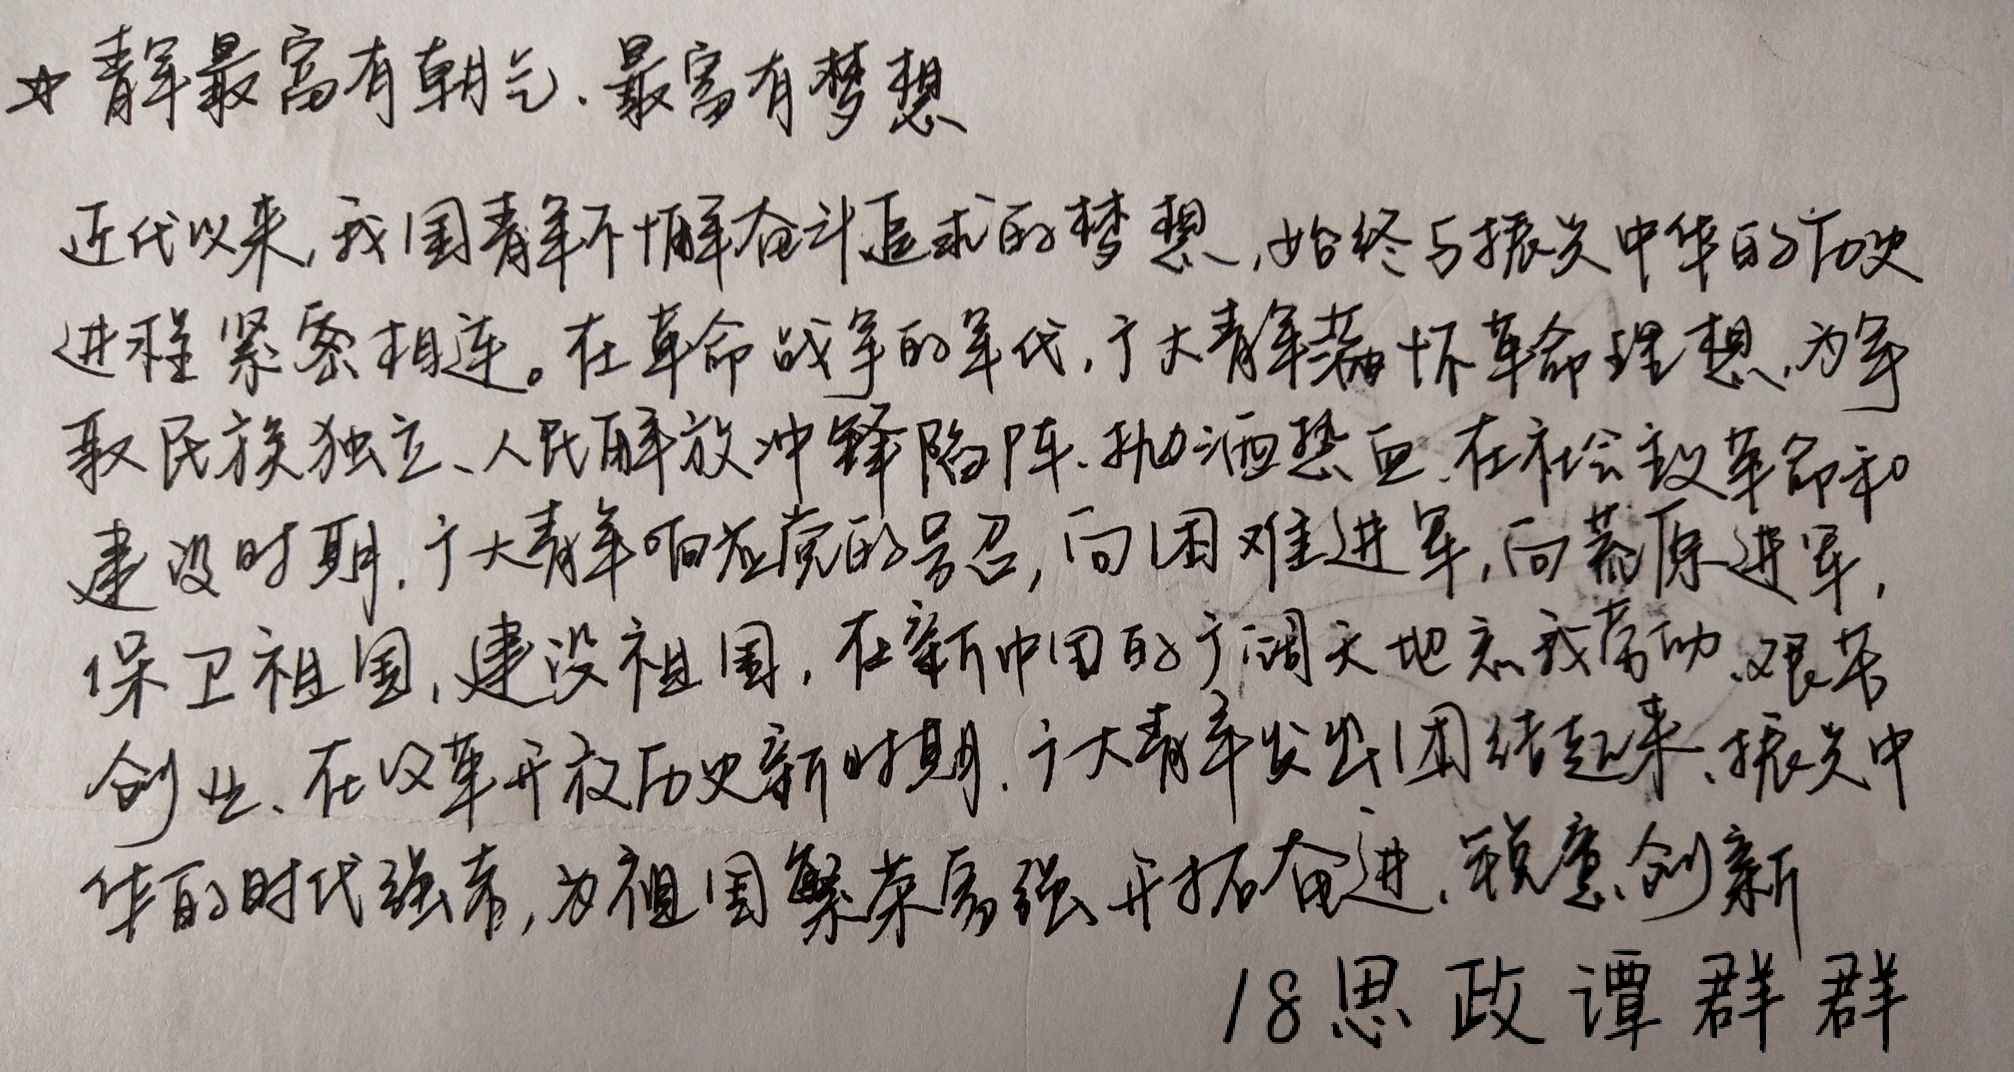 ☆青年最富有朝气、最富有梦想
近代以来,我国青年不懈奋斗追求的梦想,始终与振兴中华的历史
进程紧密相连。在革命战争的年代,广大青年满怀革命理想,为争
取民族独立、人民解放冲锋陷阵、抛洒热血、在社会主义革命和
建设时期,广大青年响应党的号召,向困难进军,向荒原进军,
保卫祖国,建设祖国,在新中国的广阔天地忘我劳动、艰苦
创业、在改革开放历史新时期,广大青年发出团结起来、振兴中
华的时代强音,为祖国繁荣富强开拓奋进、锐意创新
18思政谭群群